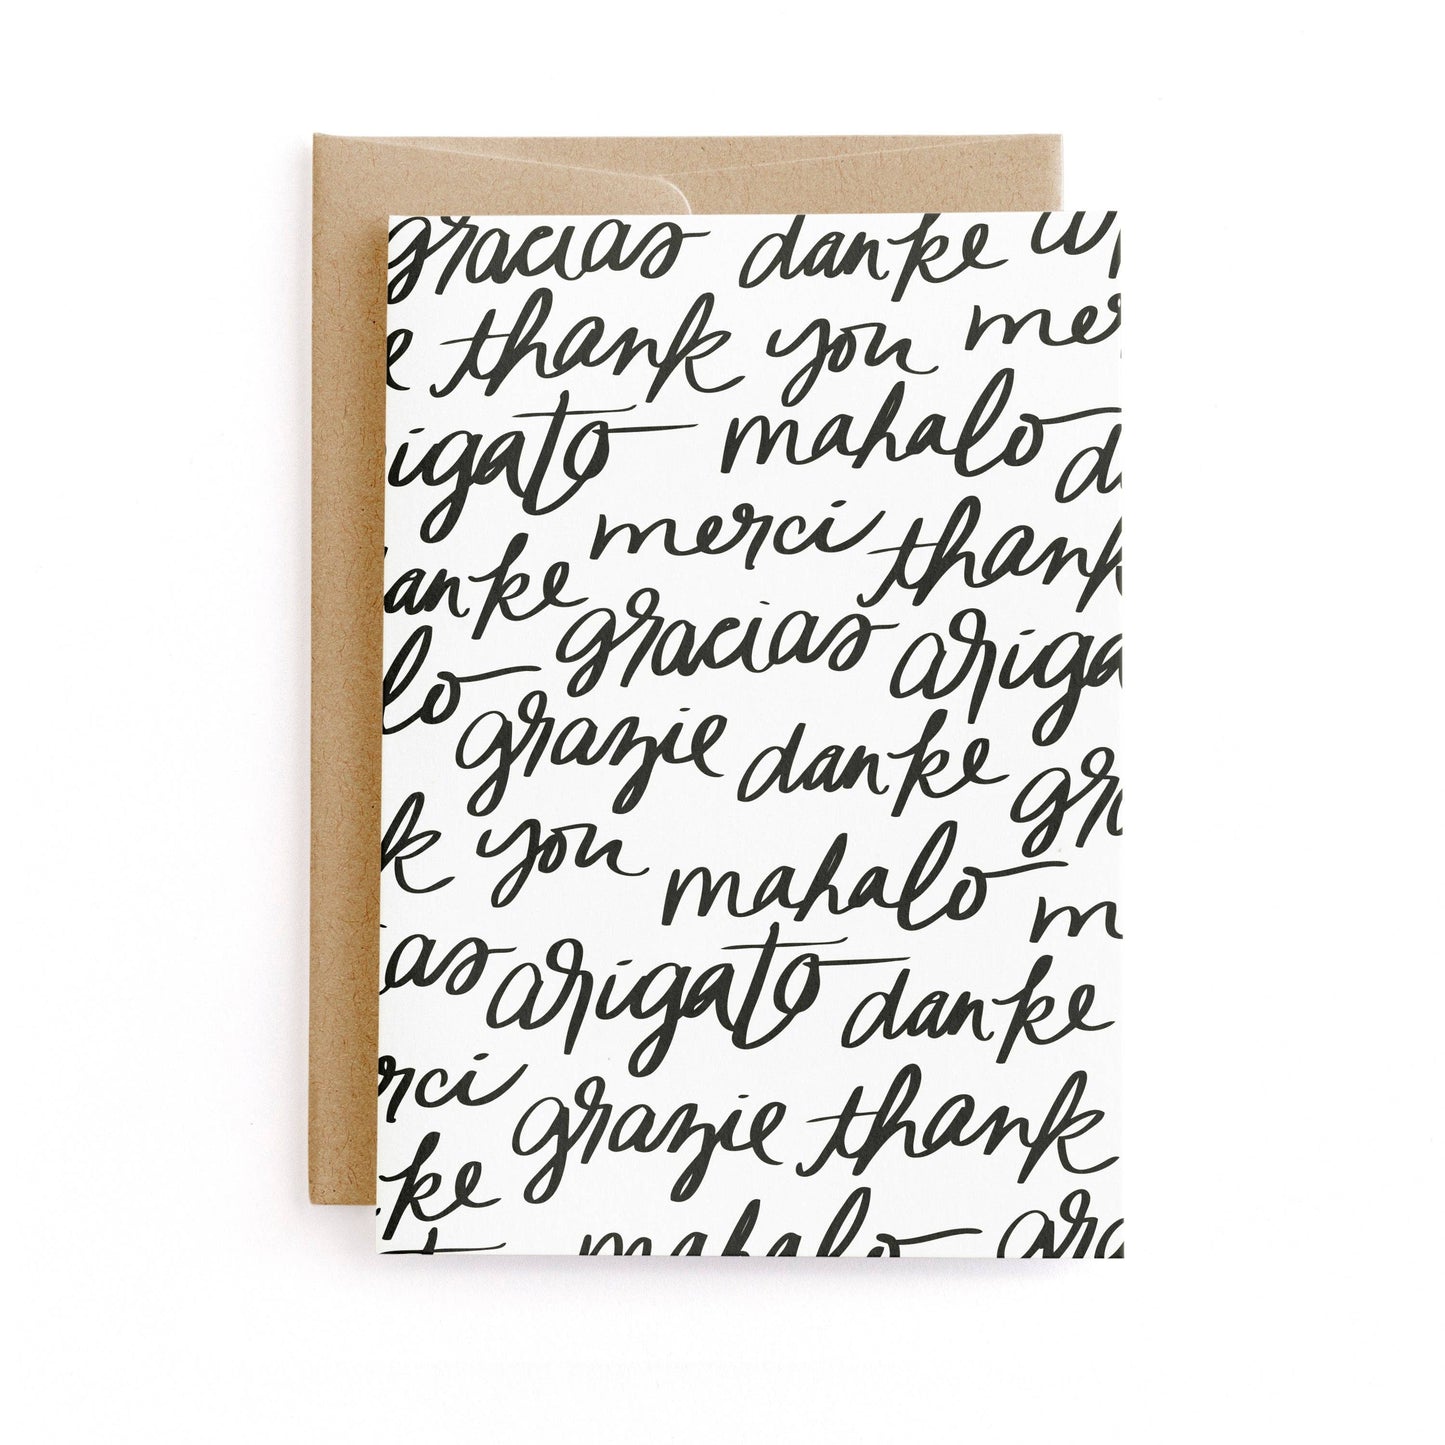 gracias danke ar
e thank you mer
igato mahalo d
merci thank
anke gracias ariga
lo grazie danke gr
k you mahalo m
ias arigato danke
rci grazie thank
ke mahalo gra